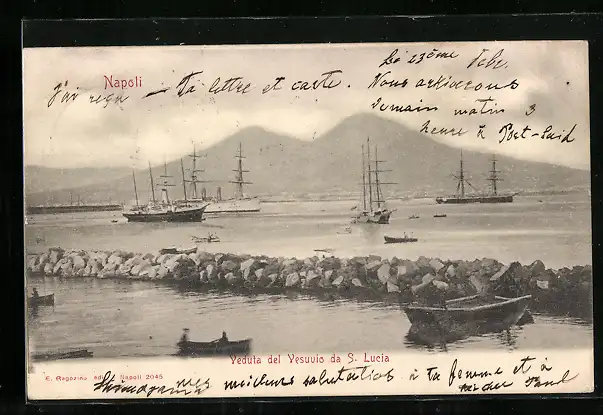 Napoli
J'ai reçu — Ta lettre et carte.
Le 23ème Febr.
Nous arriverons
demain matin 3
heure à Port-Saïd
Veduta del Vesuvio da S. Lucia
E. Ragozino edit. Napoli 2045
mes meilleurs salutations à ta femme et à